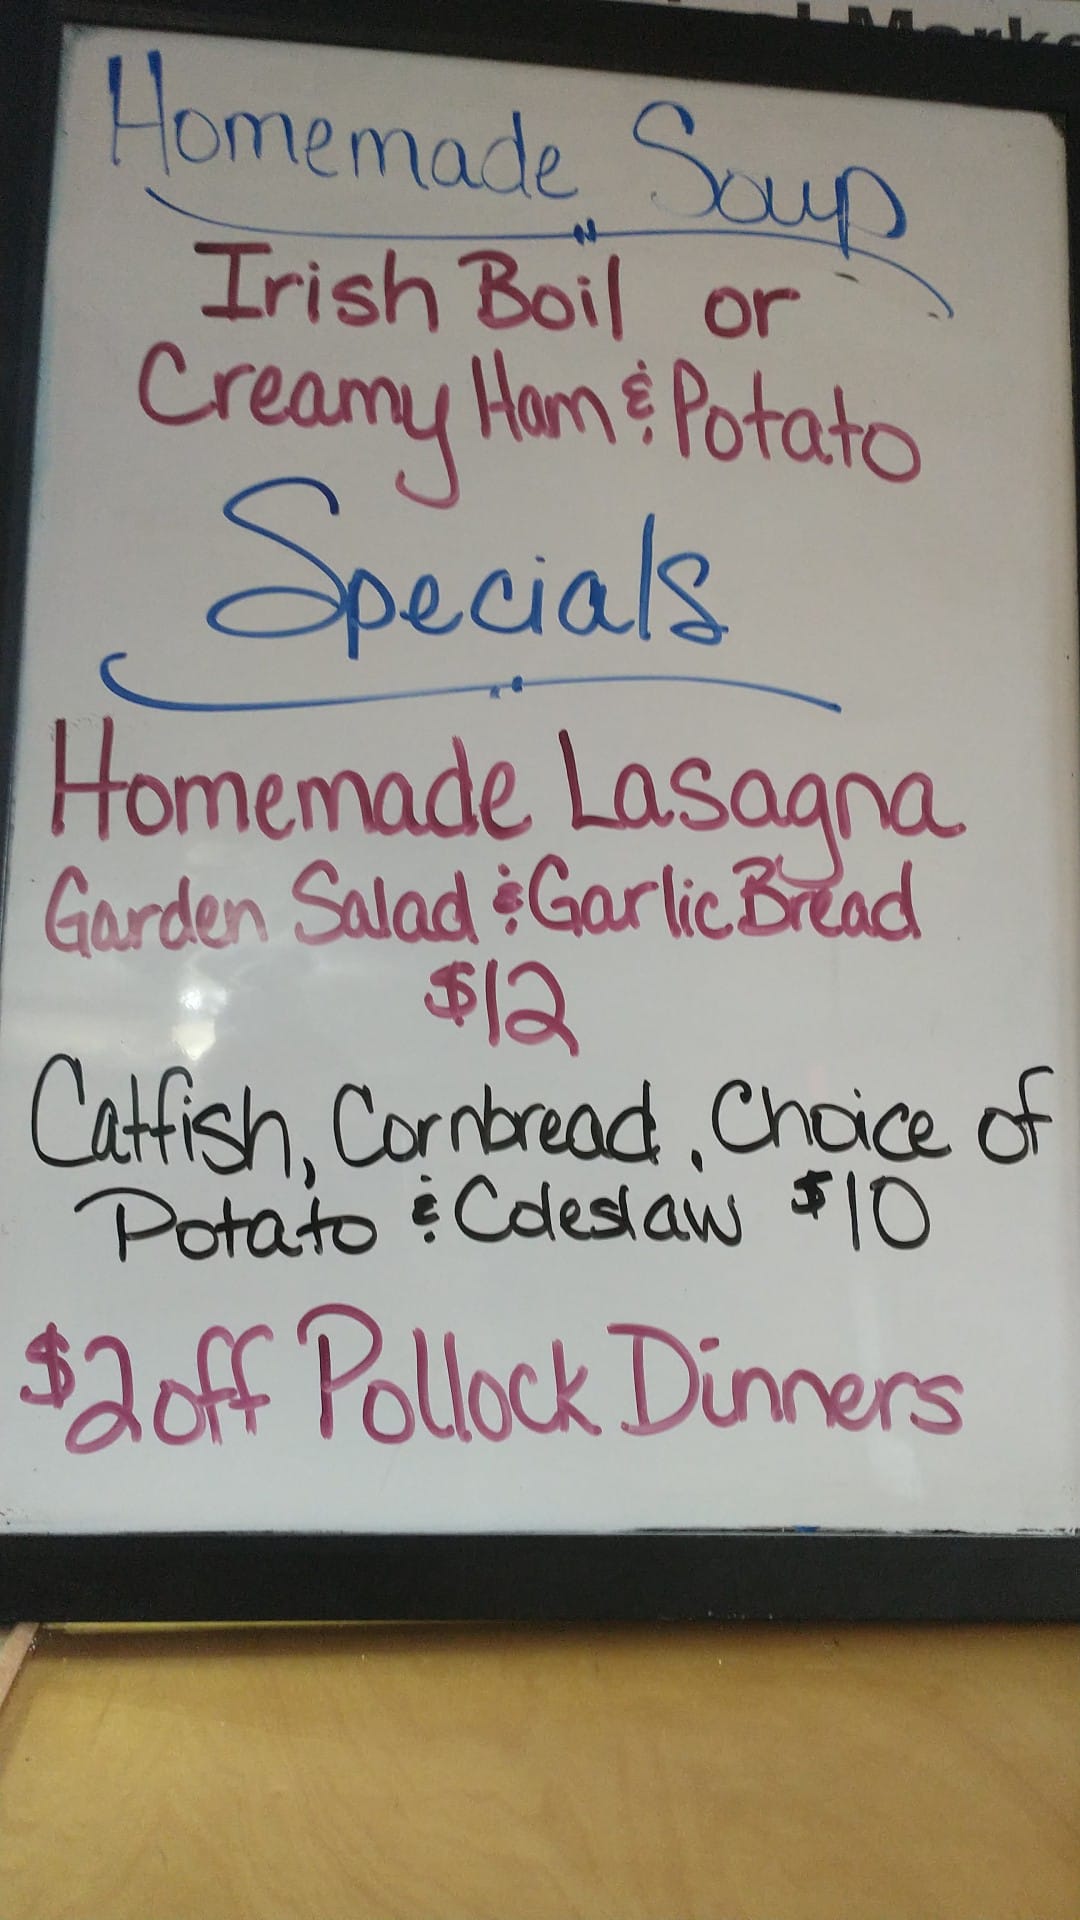 Homemade Soup
Irish Boil or
Creamy Ham & Potato
Specials
Homemade Lasagna
Garden Salad & Garlic Bread
$12
Catfish, Cornbread, Choice of
Potato & Coleslaw $10
$2 off Pollock Dinners